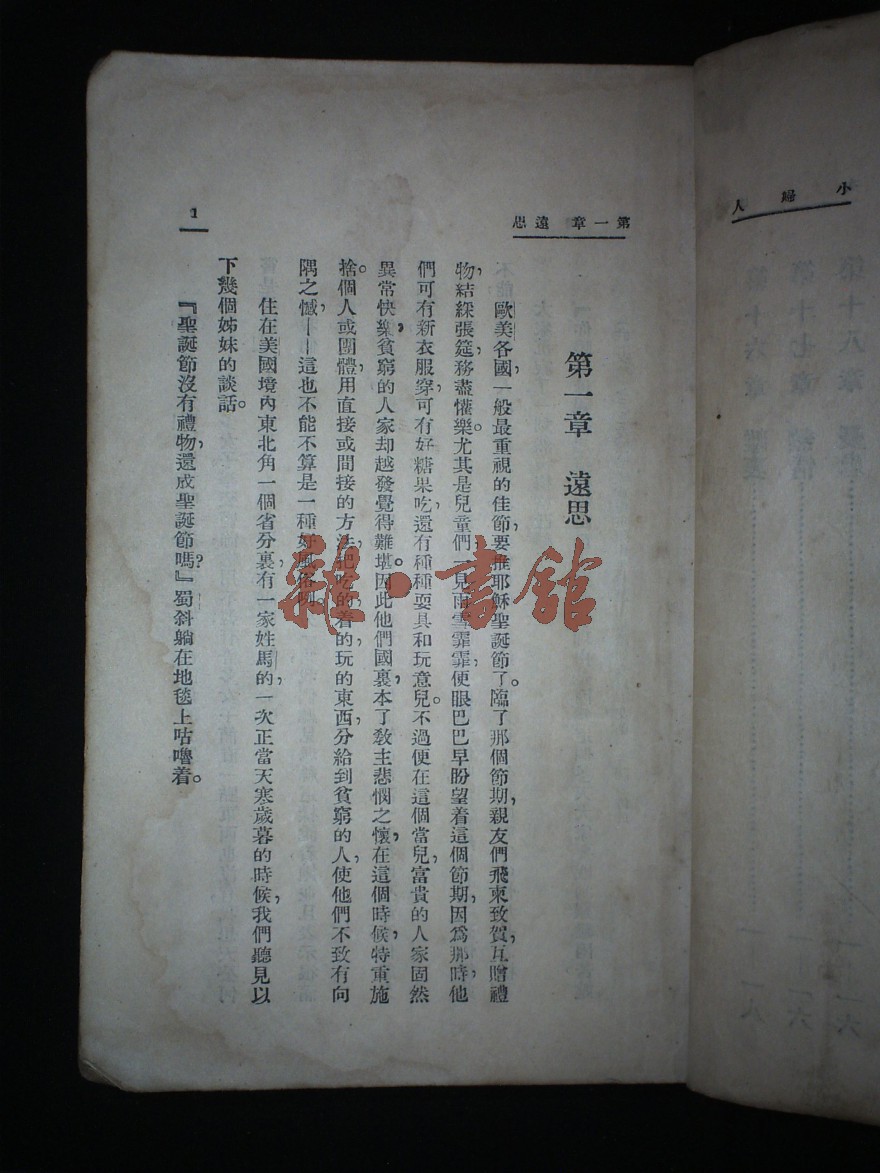 小婦人
第一章 遠思
第一章 遠思
歐美各國，一般最重視的佳節，要推耶穌聖誕節了。臨了那個節期，親友們飛柬致賀，互贈禮
物，結綵張筵，務盡懽樂。尤其是兒童們一見雨雪霏霏，便眼巴巴早盼望着這個節期，因爲那時他
們可有新衣服穿，可有好糖果吃，還有種種耍具和玩意兒。不過便在這個當兒，富貴的人家固然
異常快樂，貧窮的人家却越發覺得難堪。因此他們國裏，本了教主悲憫之懷，在這個時候，特重施
捨。個人或團體，用直接或間接的方法，把吃的着的玩的東西，分給到貧窮的人，使他們不致有向
隅之憾——這也不能不算是一種好風俗咧。
住在美國境內東北角一個省分裏，有一家姓馬的，一次正當天寒歲暮的時候，我們聽見以
下幾個姊妹的談話。
『聖誕節沒有禮物，還成聖誕節嗎？』蜀斜躺在地毯上咕嚕着。
1
第十六章
第十七章
第十八章
雜·書館